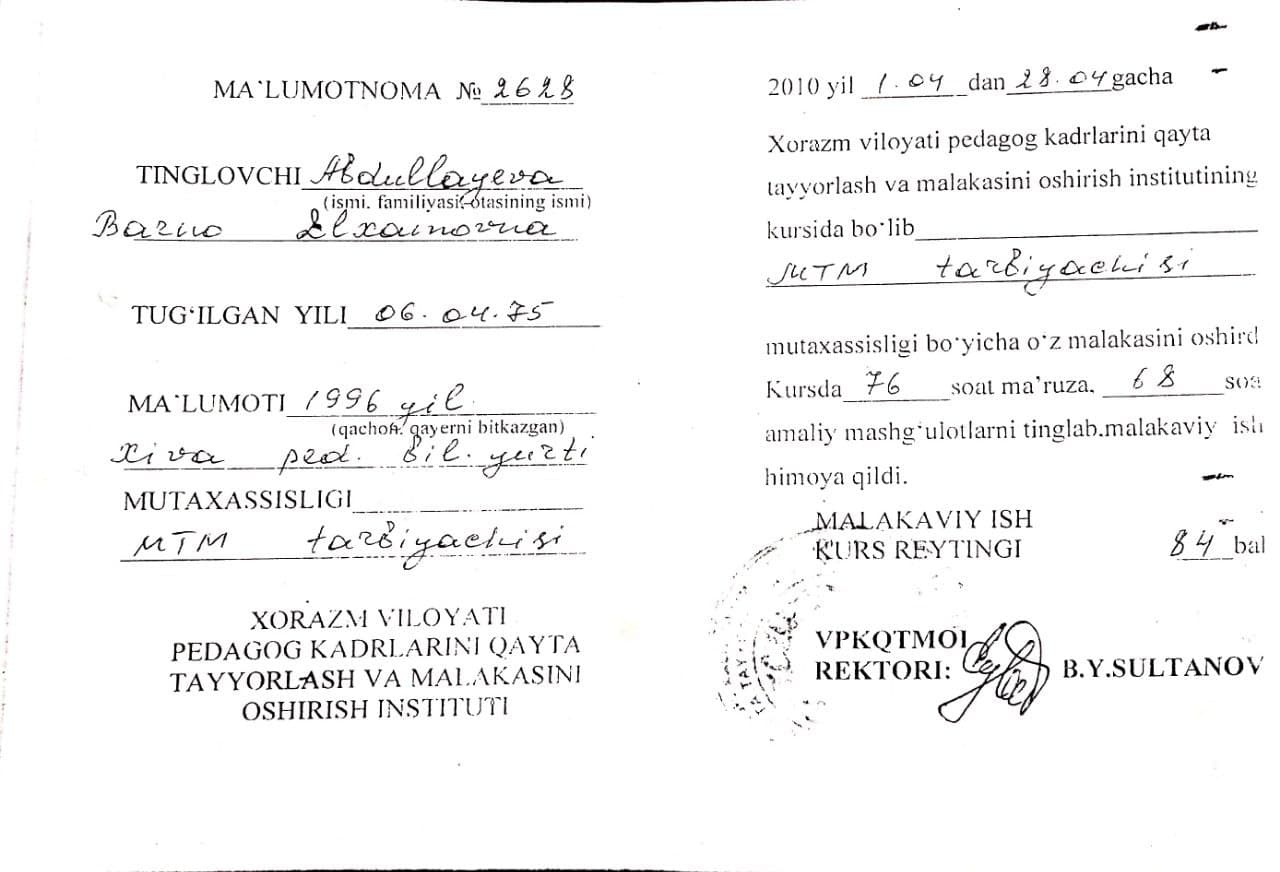 MA'LUMOTNOMA № 2628
TINGLOVCHI Abdullayeva
(ismi. familiyasi. otasining ismi)
Barno Elxamovna
TUG'ILGAN YILI 06.04.75
MA'LUMOTI 1996 yil
(qachon. qayerni bitkazgan)
Xiva ped. bil. yurti
MUTAXASSISLIGI
MTM tarbiyachisi
XORAZM VILOYATI
PEDAGOG KADRLARINI QAYTA
TAYYORLASH VA MALAKASINI
OSHIRISH INSTITUTI
2010 yil 1.04 dan 28.04 gacha
Xorazm viloyati pedagog kadrlarini qayta
tayyorlash va malakasini oshirish institutining
kursida bo'lib
MTM tarbiyachisi
mutaxassisligi bo'yicha o'z malakasini oshird
Kursda 76 soat ma'ruza, 68 soa
amaliy mashg'ulotlarni tinglab.malakaviy ish
himoya qildi.
MALAKAVIY ISH
KURS REYTINGI 84 bal
VPKQTMOI
REKTORI: B.Y.SULTANOV